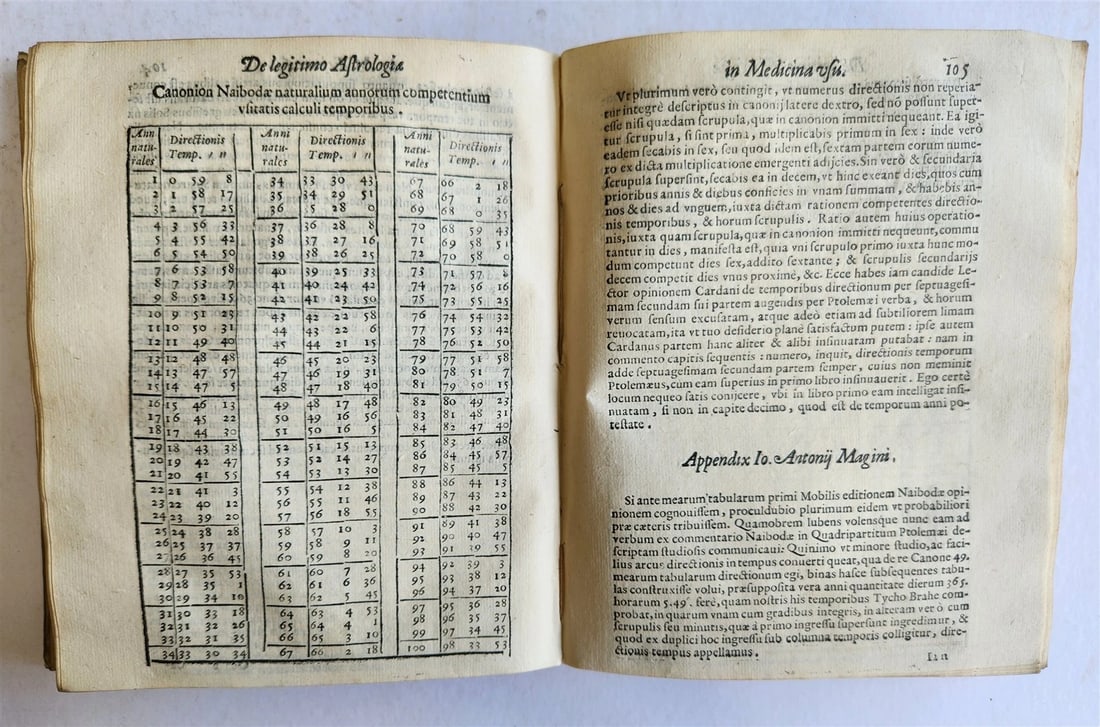 De legitimo Astrologiæ
Canonion Naibodæ naturalium annorum competentium
vsitatis calculi temporibus.
Ann natu-rales Directionis Temp. ' '' Anni natu-rales Directionis Temp. ' '' Anni natu-rales Directionis Temp. ' ''
1 0 59 8 34 33 30 43 67 66 2 18
2 1 58 17 35 34 29 51 68 67 1 26
3 2 57 25 36 5 28 0 69 68 0 35
4 3 56 33 37 36 28 8 70 68 59 43
5 4 55 42 38 37 27 16 71 69 58 51
6 5 54 50 39 38 26 25 72 70 58 0
7 6 53 58 40 39 25 33 73 71 57 8
8 7 53 7 41 40 24 42 74 72 56 16
9 8 52 15 42 41 23 50 75 73 55 25
10 9 51 23 43 42 22 58 76 74 54 32
11 10 50 31 44 43 22 6 77 75 53 42
12 11 49 40 45 44 21 15 78 76 52 50
13 12 48 48 46 45 20 23 79 77 51 58
14 13 47 57 47 46 19 31 80 78 51 7
15 14 47 5 48 47 18 40 81 79 50 15
16 15 46 13 49 48 17 48 82 80 49 23
17 16 45 22 50 49 16 56 83 81 48 31
18 17 44 30 51 50 16 5 84 82 47 40
19 18 43 38 52 51 15 13 85 83 46 48
20 19 42 47 53 52 14 27 86 84 45 57
21 20 41 55 54 53 13 30 87 85 45 5
22 21 41 3 55 54 12 38 88 86 44 13
23 22 40 12 56 55 11 46 89 87 43 22
24 23 39 20 57 56 18 55 90 88 42 30
25 24 38 28 58 57 10 3 91 89 41 38
26 25 37 37 59 58 9 11 92 90 40 47
27 26 36 45 60 59 8 20 93 91 39 55
28 27 35 53 61 60 7 28 94 92 39 3
29 28 35 1 62 61 6 36 95 93 38 12
30 29 34 10 63 62 5 45 96 94 37 20
31 30 33 18 64 63 4 53 97 95 36 28
32 31 32 26 65 64 4 1 98 96 35 37
33 32 31 35 66 65 3 10 99 97 34 45
34 33 30 34 67 66 2 18 100 98 33 53
in Medicina vsu. 105
Vt plurimum verò contingit, vt numerus directionis non reperia-
tur integrè descriptus in canonij latere dextro, sed nō possunt super-
esse nisi quædam scrupula, quæ in canonion immitti nequeant. Ea igi
tur scrupula, si sint prima, multiplicabis primum in sex: inde verò
eadem secabis in sex, seu quod idem est, sextam partem eorum nume-
ro ex dicta multiplicatione emergenti adijcies. Sin verò & secundaria
scrupula supersint, secabis ea in decem, vt hinc exeant dies, quos cum
prioribus annis & diebus conficies in vnam summam, & habebis an-
nos & dies ad vnguem, iuxta dictam rationem competentes directio-
nis temporibus, & horum scrupulis. Ratio autem huius operatio-
nis, iuxta quam scrupula, quæ in canonion immitti nequeunt, commu
tantur in dies, manifesta est, quia vni scrupulo primo iuxta hunc mo-
dum competunt dies sex, addito sextante; & scrupulis secundarijs
decem competit dies vnus proximè, &c. Ecce habes iam candide Le-
ctor opinionem Cardani de temporibus directionum per septuagesi-
mam secundam sui partem augendis per Ptolemæi verba, & horum
verum sensum excusatam, atque adeò etiam ad subtiliorem limam
reuocatam, ita vt tuo desiderio planè satisfactum putem: ipse autem
Cardanus partem hanc aliter & alibi insinuatam putabat: nam in
commento capitis sequentis: numero, inquit, directionis temporum
adde septuagesimam secundam partem semper, cuius non meminit
Ptolemæus, cum eam superius in primo libro insinuauerit. Ego certè
locum nequeo satis conijcere, vbi in libro primo eam intelligat insi-
nuatam, si non in capite decimo, quod est de temporum anni po-
testate.
Appendix Io. Antonij Magini.
Si ante mearum tabularum primi Mobilis editionem Naibodæ opi-
nionem cognouissem, proculdubio plurimum eidem vt probabiliori
præ cæteris tribuissem. Quamobrem lubens volensque nunc eam ad
verbum ex commentario Naibodæ in Quadripartitum Ptolemæi de-
scriptam studiosis communicaui: Quinimo vt minore studio, ac faci-
lius arcus directionis in tempus conuerti queat, qua de re Canone 49.
mearum tabularum directionum egi, binas hasce subsequentes tabu-
las construxisse volui, præsupposita vera anni quantitate dierum 365.
horarum 5.49'. ferè, quam nostris his temporibus Tycho Brahe com-
probat, in quarum vnam cum gradibus integris, in alteram verò cum
scrupulis seu minutis, quæ à primo ingressu supersunt ingredimur, &
quod ex duplici hoc ingressu sub columna temporis colligitur, dire-
ctionis tempus appellamus.